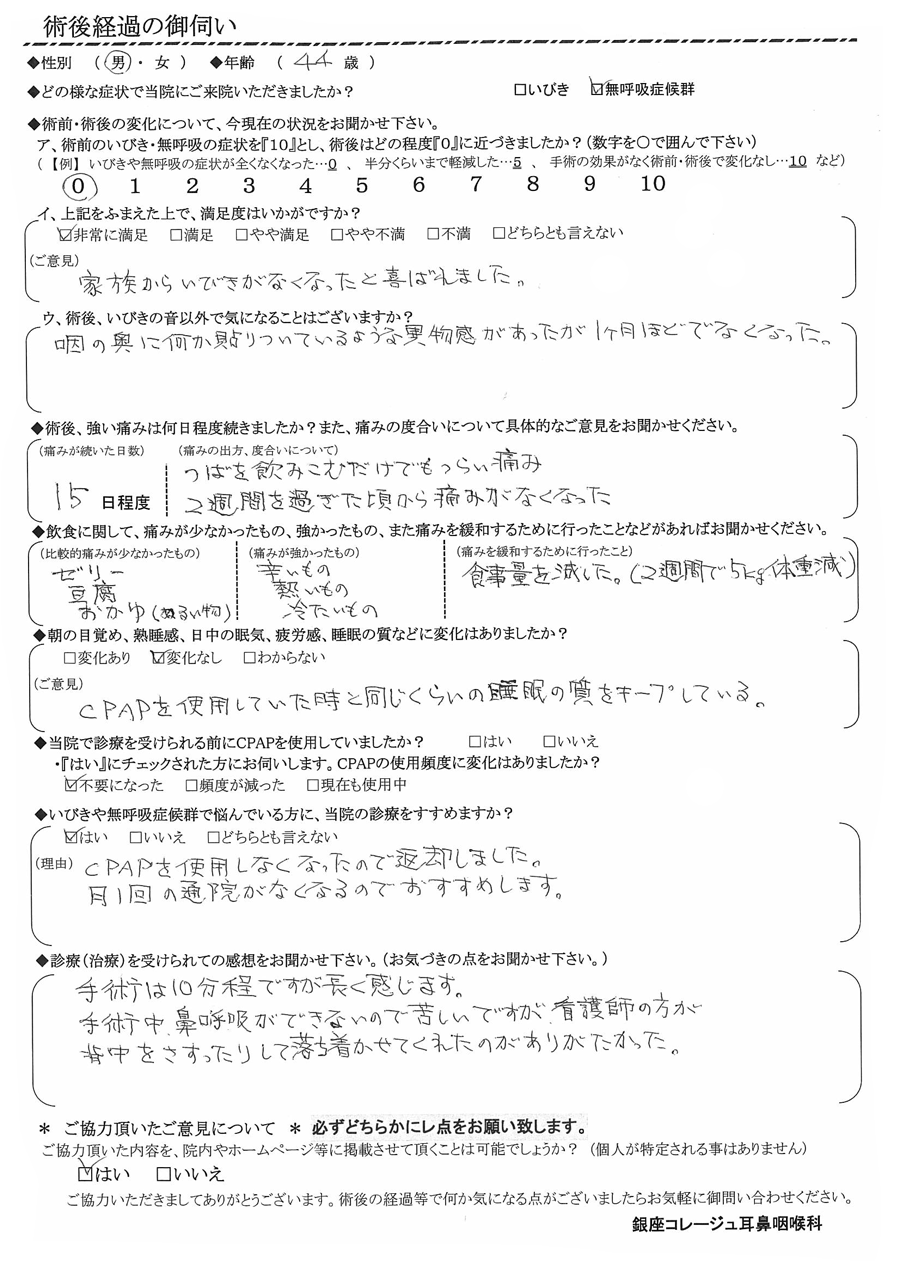 術後経過の御伺い
◆性別 （ 男 ・ 女 ） ◆年齢 （ 44 歳 ）
◆どの様な症状で当院にご来院いただきましたか？ □いびき ☑無呼吸症候群
◆術前・術後の変化について、今現在の状況をお聞かせ下さい。
ア、術前のいびき・無呼吸の症状を『10』とし、術後はどの程度『0』に近づきましたか？（数字を○で囲んで下さい）
（【例】いびきや無呼吸の症状が全くなくなった…0 、 半分くらいまで軽減した…5 、 手術の効果がなく術前・術後で変化なし…10 など）
0 1 2 3 4 5 6 7 8 9 10
イ、上記をふまえた上で、満足度はいかがですか？
☑非常に満足 □満足 □やや満足 □やや不満 □不満 □どちらとも言えない
（ご意見）
家族からいびきがなくなったと喜ばれました。
ウ、術後、いびきの音以外で気になることはございますか？
咽の奥に何か貼りついているような異物感があったが1ヶ月ほどでなくなった。
◆術後、強い痛みは何日程度続きましたか？また、痛みの度合いについて具体的なご意見をお聞かせください。
（痛みが続いた日数） （痛みの出方、度合いについて）
つばを飲みこむだけでもつらい痛み
15 日程度 2週間を過ぎた頃から痛みがなくなった
◆飲食に関して、痛みが少なかったもの、強かったもの、また痛みを緩和するために行ったことなどがあればお聞かせください。
（比較的痛みが少なかったもの） （痛みが強かったもの） （痛みを緩和するために行ったこと）
ゼリー 辛いもの 食事量を減した。（2週間で5kg体重減）
豆腐 熱いもの
おかゆ（ぬるい物） 冷たいもの
◆朝の目覚め、熟睡感、日中の眠気、疲労感、睡眠の質などに変化はありましたか？
□変化あり ☑変化なし □わからない
（ご意見）
CPAPを使用していた時と同じくらいの睡眠の質をキープしている。
◆当院で診療を受けられる前にCPAPを使用していましたか？ □はい □いいえ
・『はい』にチェックされた方にお伺いします。CPAPの使用頻度に変化はありましたか？
☑不要になった □頻度が減った □現在も使用中
◆いびきや無呼吸症候群で悩んでいる方に、当院の診療をすすめますか？
☑はい □いいえ □どちらとも言えない
（理由） CPAPを使用しなくなったので返却しました。
月1回の通院がなくなるのでおすすめします。
◆診療（治療）を受けられての感想をお聞かせ下さい。（お気づきの点をお聞かせ下さい。）
手術は10分程ですが長く感じます。
手術中、鼻呼吸ができないので苦しいですが、看護師の方が
背中をさすったりして落ち着かせてくれたのがありがたかった。
＊ ご協力頂いたご意見について ＊ 必ずどちらかにレ点をお願い致します。
ご協力頂いた内容を、院内やホームページ等に掲載させて頂くことは可能でしょうか？ （個人が特定される事はありません）
☑はい □いいえ
ご協力いただきましてありがとうございます。術後の経過等で何か気になる点がございましたらお気軽に御問い合わせください。
銀座コレージュ耳鼻咽喉科